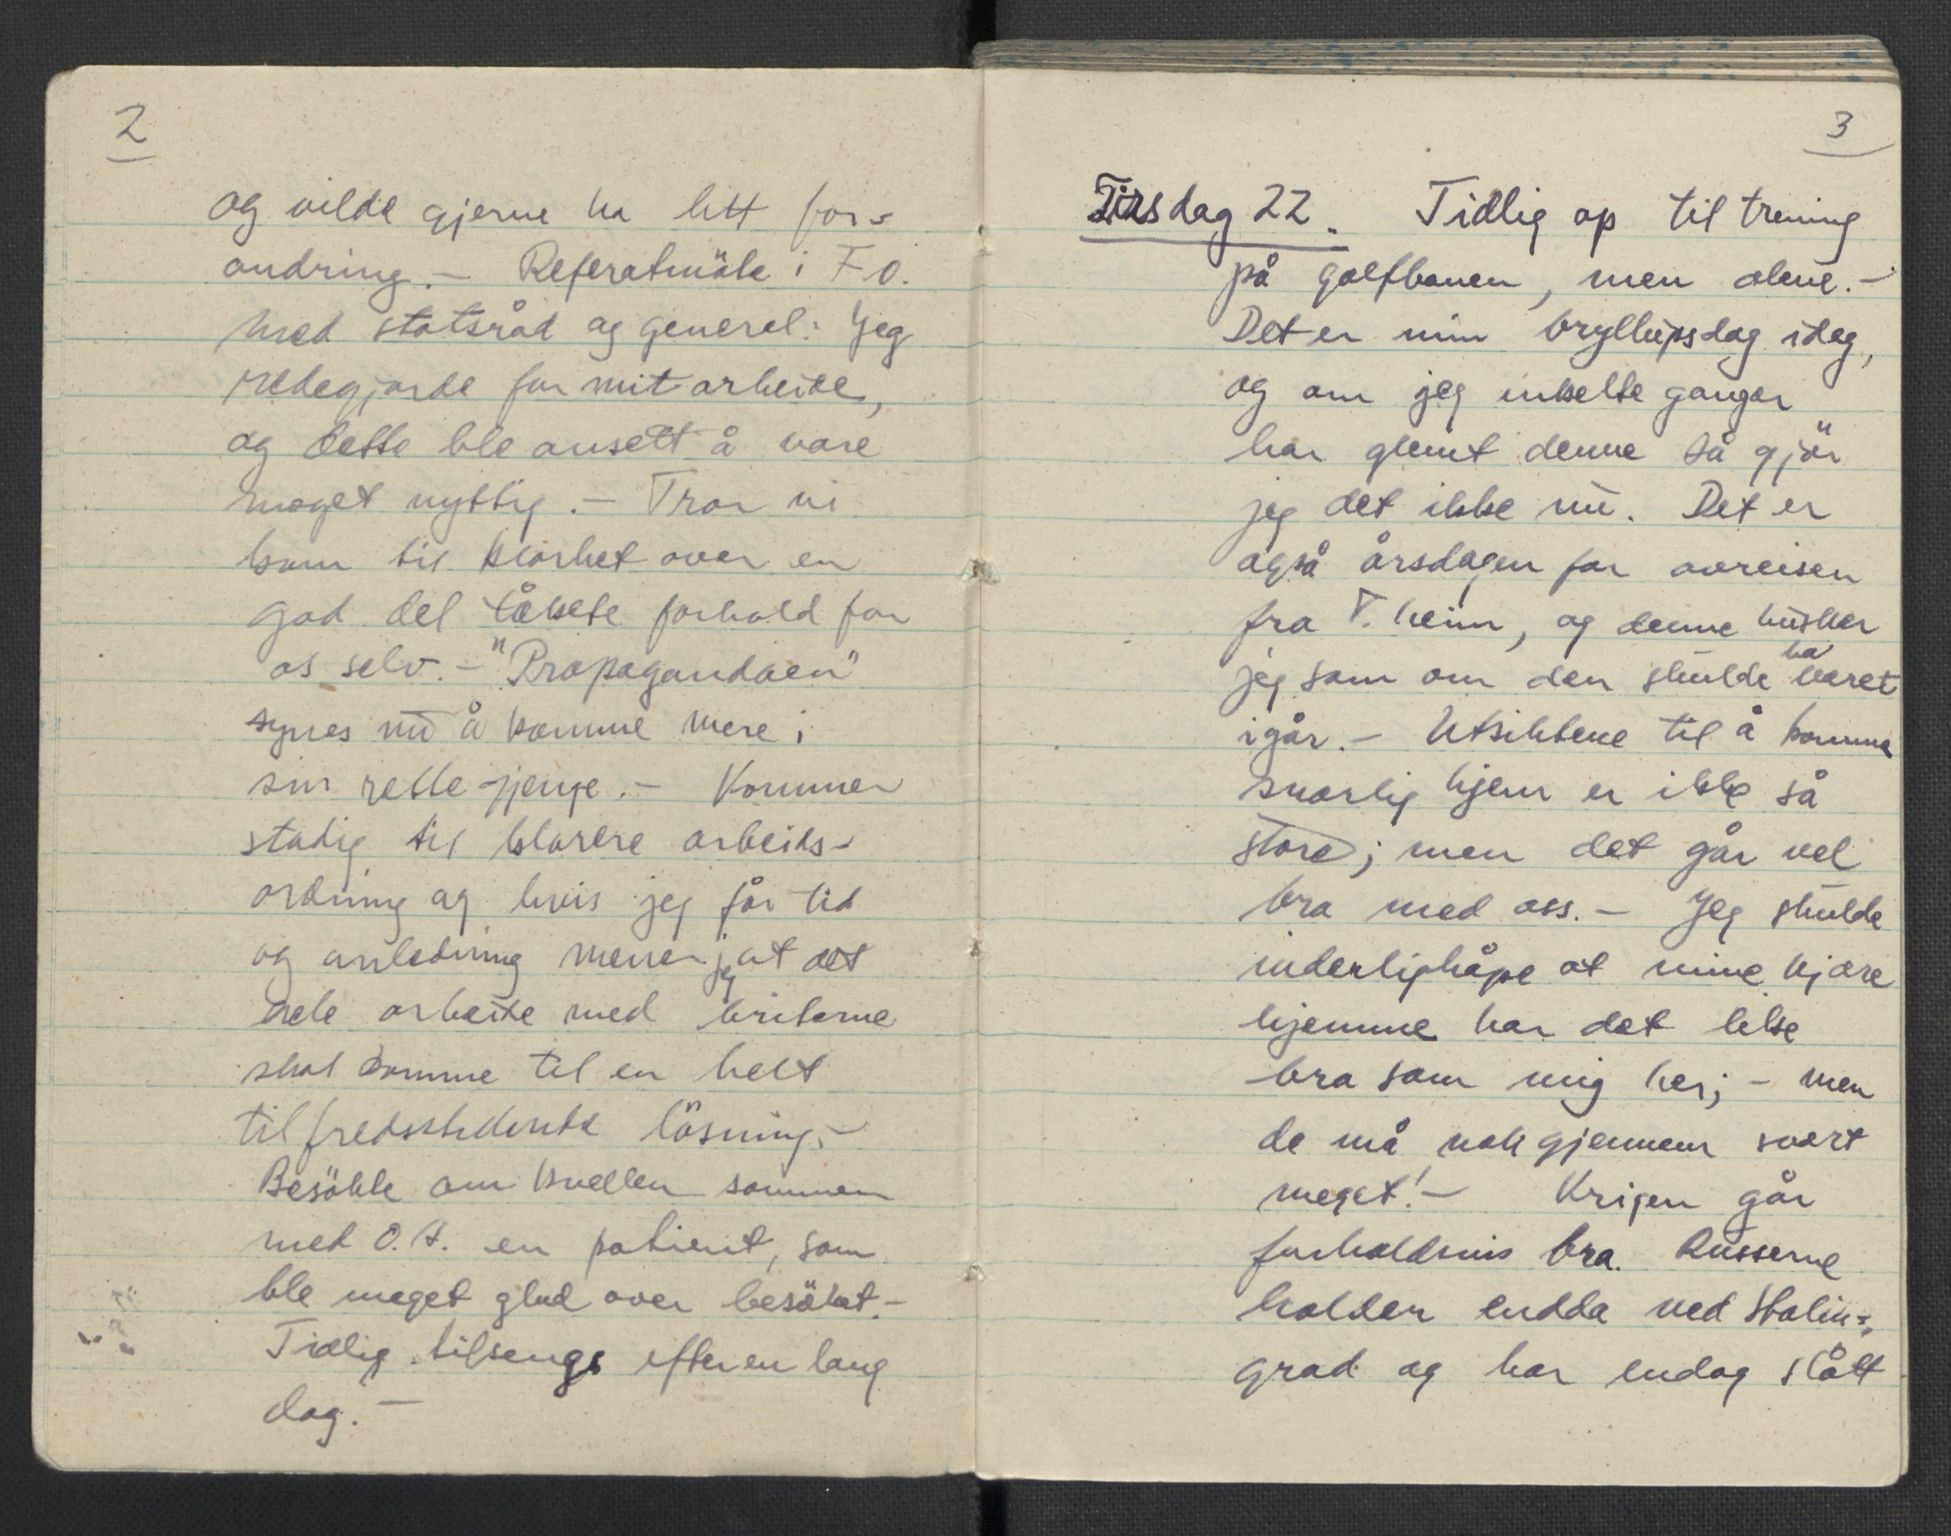 2
og vilde gjerne ha litt for-
andring. – Referatmöte i F.O.
med statsråd og general. Jeg
redegjorde for mit arbeide,
og dette ble ansett å vare
meget nyttig. – Tror vi
kom til klarhet over en
god del tåkete forhold for
os selv. – "Propagandaen"
synes nū å komme mere i
sin rette gjenge. – Kommer
stadig til klarere arbeids-
ordning og hvis jeg får tid
og anledning mener jeg at det
hele arbeide med briterne
skal komme til en helt
tilfredsstillende lösning. –
Besökte om kvellen sammen
med O.H. en patient, som
ble meget glad over besöket. –
Tidlig tilsengs efter en lang
dag. –
3
Tirsdag 22. Tidlig op til trening
på golfbanen, men alene. –
Det er min bryllupsdag idag,
og om jeg enkelte ganger
har glemt denne så gjör
jeg det ikke nū. Det er
også årsdagen for avreisen
fra T.heim, og denne husker
jeg som om den skulde ha varet
igår. – Utsiktene til å komme
snarlig hjem er ikke så
store; men det går vel
bra med oss. – Jeg skulde
inderlig håpe at mine kjære
hjemme har det like
bra som mig her; – men
de må nok gjennem svært
meget! – Krigen går
forholdsvis bra. Russerne
holder endda ved Stalin-
grad og har endog slått